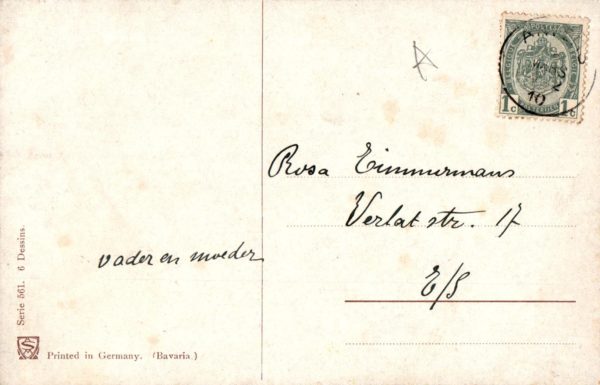 vader en moeder
Rosa Timmermans
Verlat str. 17
E/S
Serie 561. 6 Dessins.
Printed in Germany. (Bavaria.)
1c 1c
10